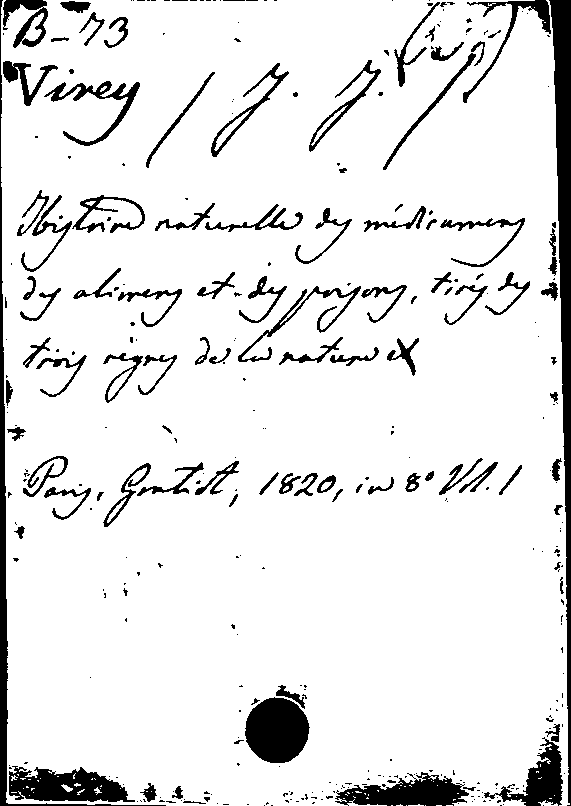 B-73
Virey / J. J. /
Histoire naturelle des médicamens
des alimens et des poisons, tirés des
trois règnes de la nature
Paris, 1820, in 8° Vol. 1